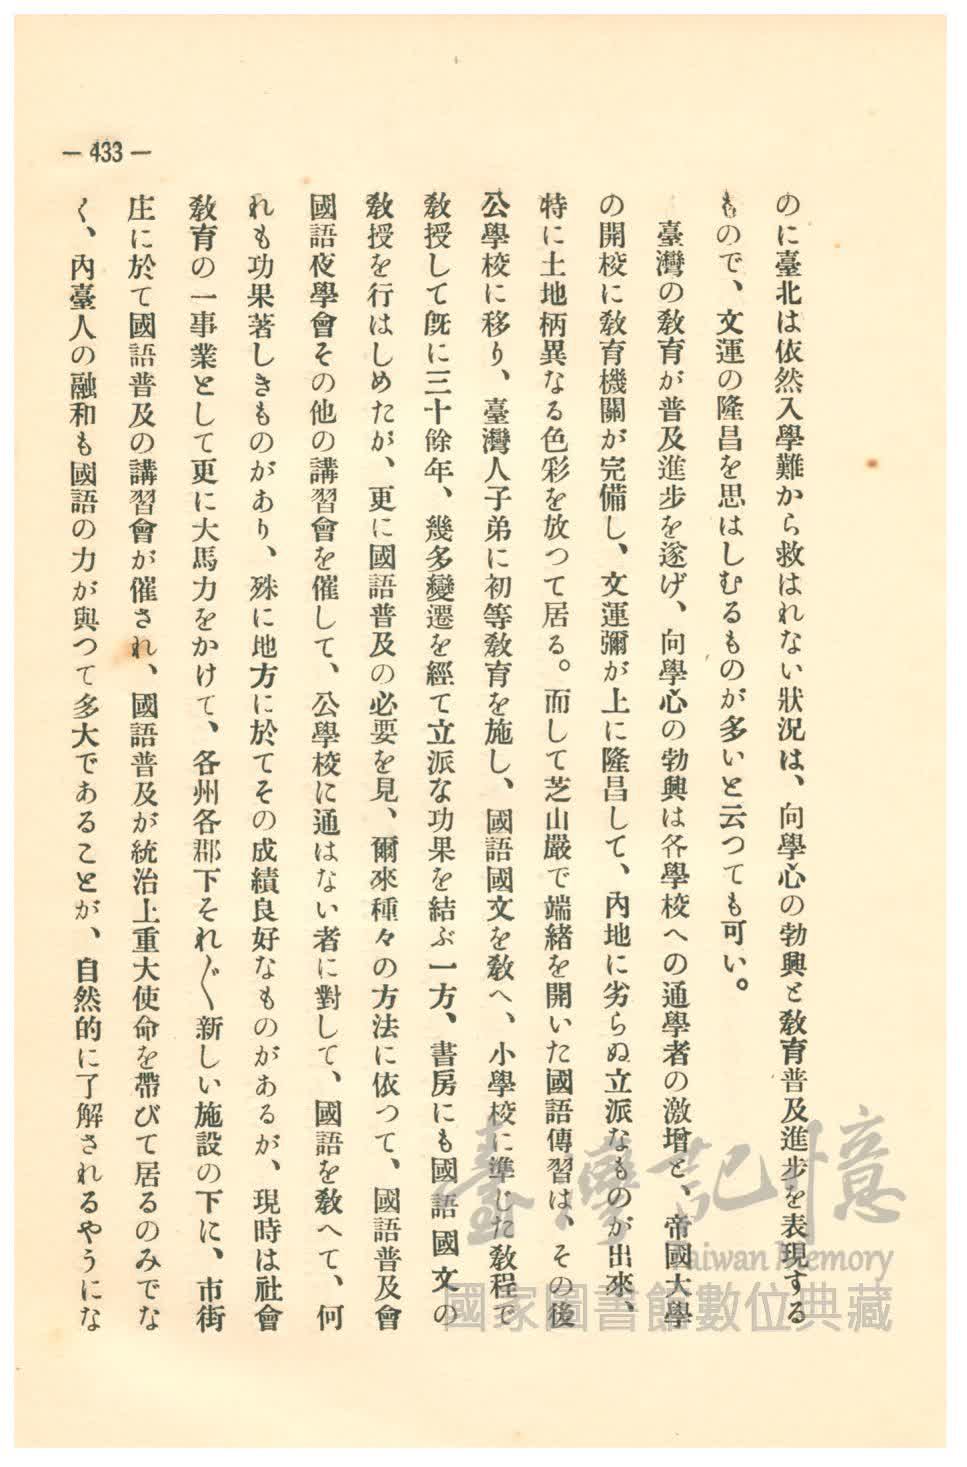 — 433 —
のに臺北は依然入學難から救はれない狀況は、向學心の勃興と敎育普及進步を表現する
もので、文運の隆昌を思はしむるものが多いと云つても可い。
臺灣の敎育が普及進步を遂げ、向學心の勃興は各學校への通學者の激增と、帝國大學
の開校に敎育機關が完備し、文運彌が上に隆昌して、內地に劣らぬ立派なものが出來、
特に土地柄異なる色彩を放つて居る。而して芝山巖で端緖を開いた國語傳習は、その後
公學校に移り、臺灣人子弟に初等敎育を施し、國語國文を敎へ、小學校に準じた敎程で
敎授して旣に三十餘年、幾多變遷を經て立派な功果を結ぶ一方、書房にも國語國文の
敎授を行はしめたが、更に國語普及の必要を見、爾來種々の方法に依つて、國語普及會
國語夜學會その他の講習會を催して、公學校に通はない者に對して、國語を敎へて、何
れも功果著しきものがあり、殊に地方に於てその成績良好なものがあるが、現時は社會
敎育の一事業として更に大馬力をかけて、各州各郡下それ〴〵新しい施設の下に、市街
庄に於て國語普及の講習會が催され、國語普及が統治上重大使命を帶びて居るのみでな
く、內臺人の融和も國語の力が與つて多大であることが、自然的に了解されるやうにな
臺灣記憶
Taiwan Memory
國家圖書館數位典藏